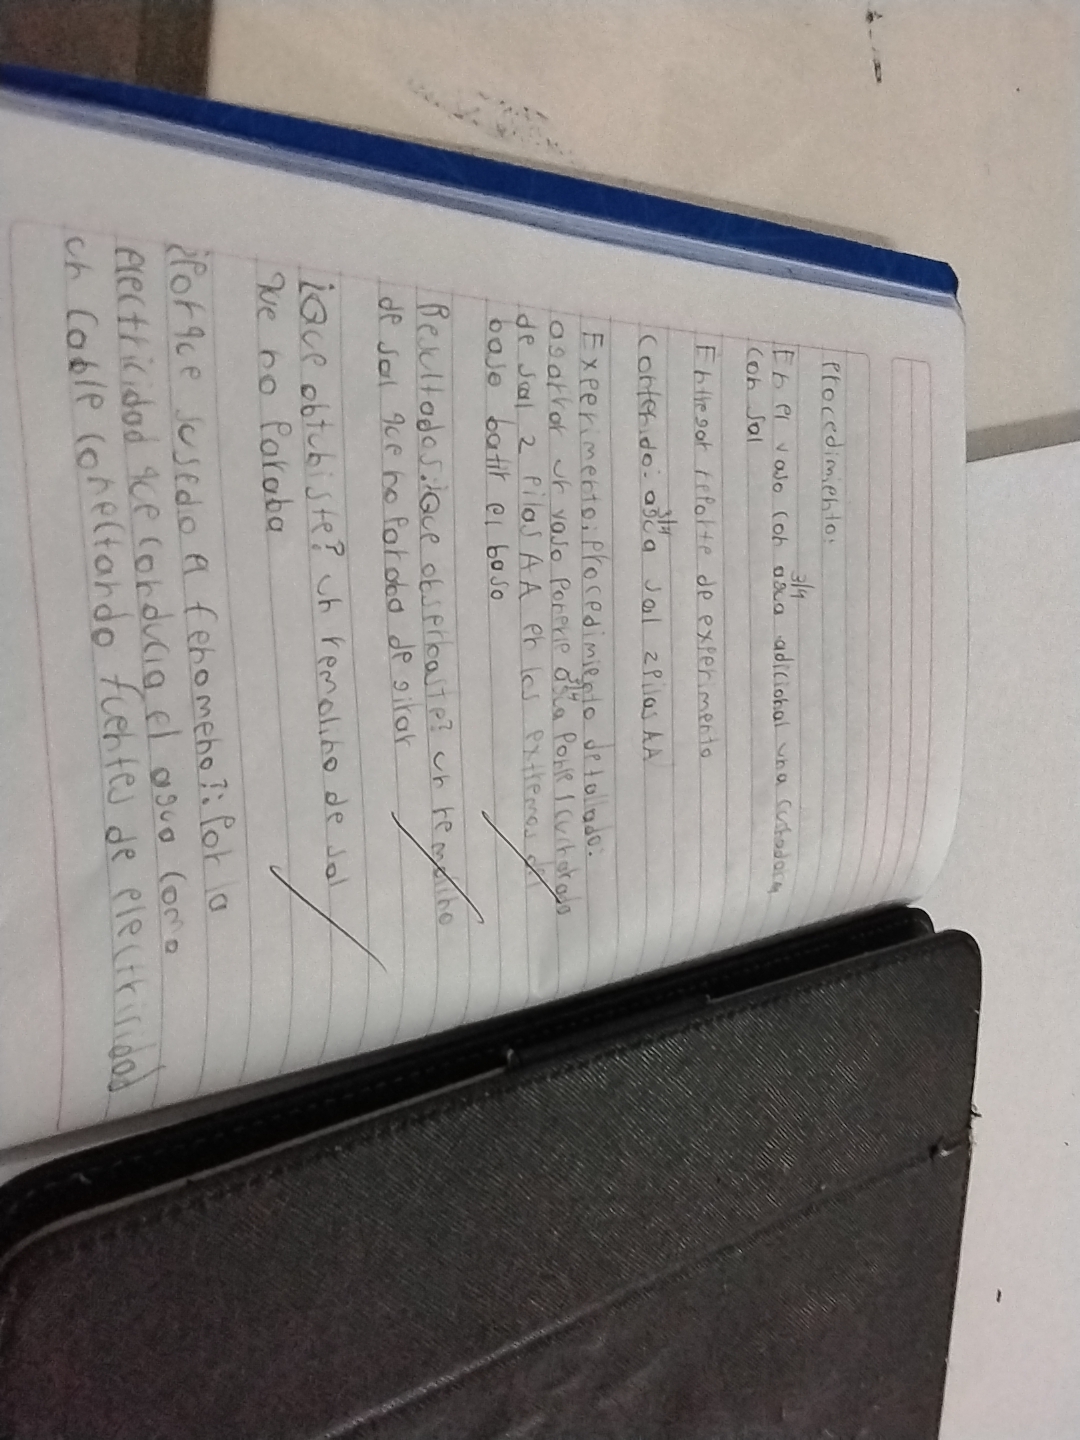 Procedimiento:
En el vaso con agua 3/4 adicional una cucharada
con sal
Entregar reporte de experimento
Contenido: agua 3/4 sal 2 pilas AA
Experimento: Procedimiento detallado:
agarrar un vaso ponerle agua 3/4 ponle 1 cucharada
de sal 2 pilas AA en los extremos del
baso batir el baso
Resultados: ¿Que obserbaste? un remolino
de sal que no paraba de girar
¿Que obtubiste? un remolino de sal
que no paraba
¿Porque susedio A fenomeno?: Por la
electricidad que conducia el agua como
un cable conectando fuentes de electrisidad